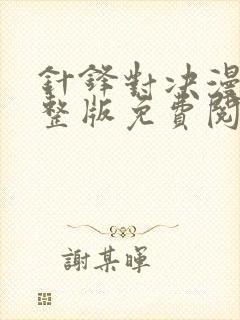 針鋒對决漫
整版免費閱
謝某暉